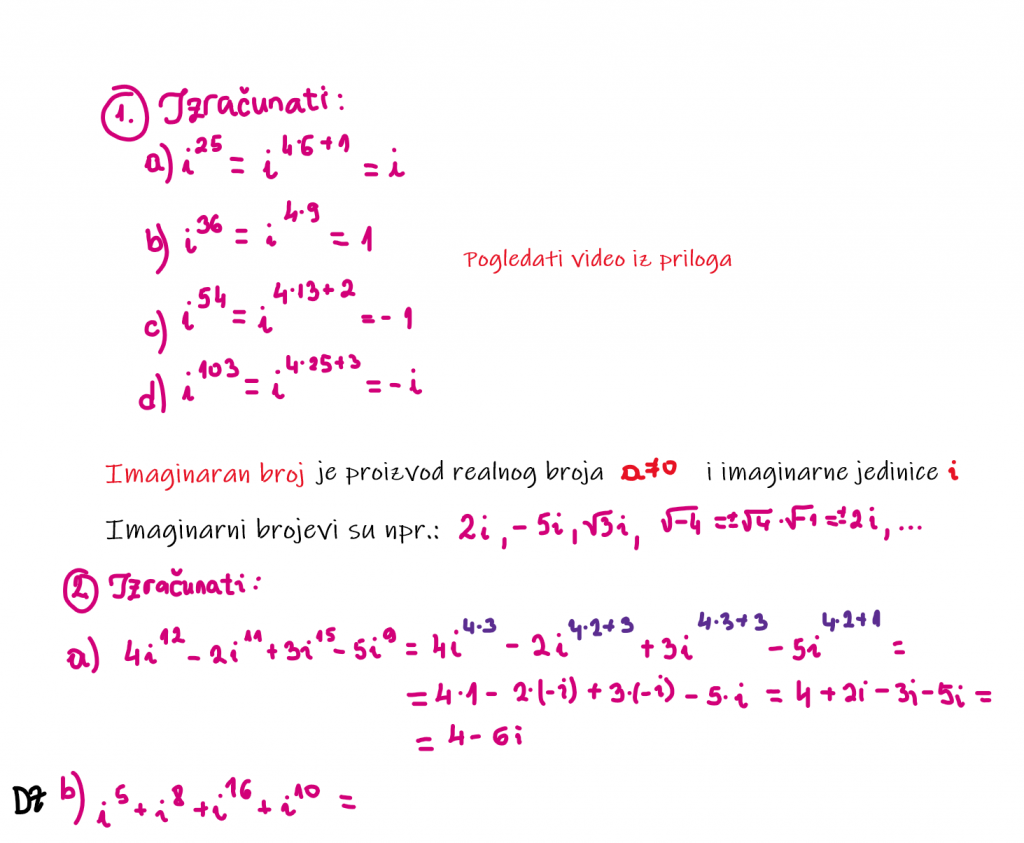 1. Izračunati:
a) i^25 = i^(4·6+1) = i
b) i^36 = i^(4·9) = 1
Pogledati video iz priloga
c) i^54 = i^(4·13+2) = -1
d) i^103 = i^(4·25+3) = -i
Imaginaran broj je proizvod realnog broja a≠0 i imaginarne jedinice i
Imaginarni brojevi su npr.: 2i, -5i, √3i, √-4 = ±√4·√-1 = ±2i, ...
2 Izračunati:
a) 4i^12 - 2i^11 + 3i^15 - 5i^9 = 4i^(4·3) - 2i^(4·2+3) + 3i^(4·3+3) - 5i^(4·2+1) =
= 4·1 - 2·(-i) + 3·(-i) - 5·i = 4 + 2i - 3i - 5i =
= 4 - 6i
DZ b) i^5 + i^8 + i^16 + i^10 =